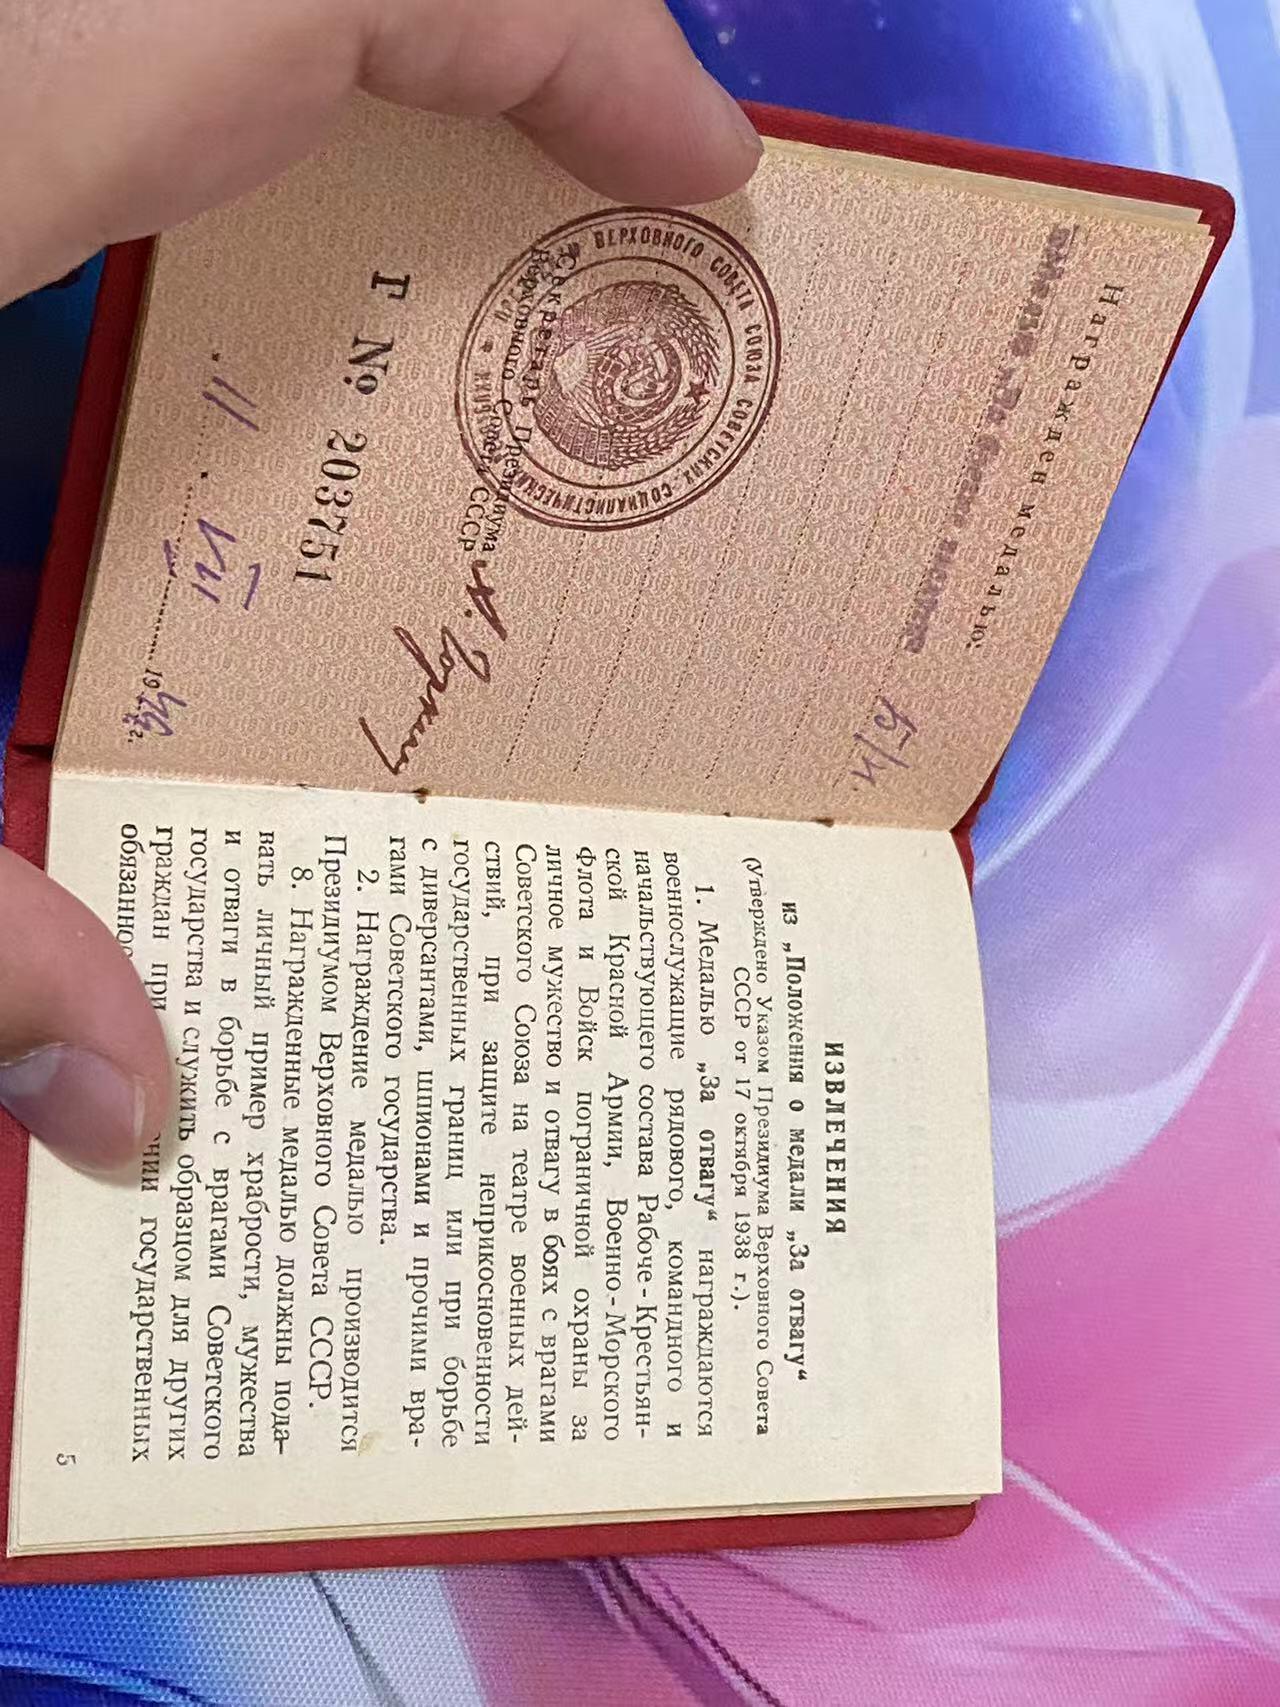 Награжден медалью:
Б/н.
ВЕРХОВНОГО СОВЕТА СОЮЗА СОВЕТСКИХ СОЦИАЛИСТИЧЕСКИХ
Секретарь Президиума
Верховного Совета СССР
Г № 203751
11. VII 19 г.
ИЗВЛЕЧЕНИЯ
из „Положения о медали „За отвагу“
(Утверждено Указом Президиума Верховного Совета
СССР от 17 октября 1938 г.).
1. Медалью „За отвагу“ награждаются
военнослужащие рядового, командного и
начальствующего состава Рабоче-Крестьян-
ской Красной Армии, Военно-Морского
Флота и Войск пограничной охраны за
личное мужество и отвагу в боях с врагами
Советского Союза на театре военных дей-
ствий, при защите неприкосновенности
государственных границ или при борьбе
с диверсантами, шпионами и прочими вра-
гами Советского государства.
2. Награждение медалью производится
Президиумом Верховного Совета СССР.
8. Награжденные медалью должны пода-
вать личный пример храбрости, мужества
и отваги в борьбе с врагами Советского
государства и служить образцом для других
граждан при государственных
5